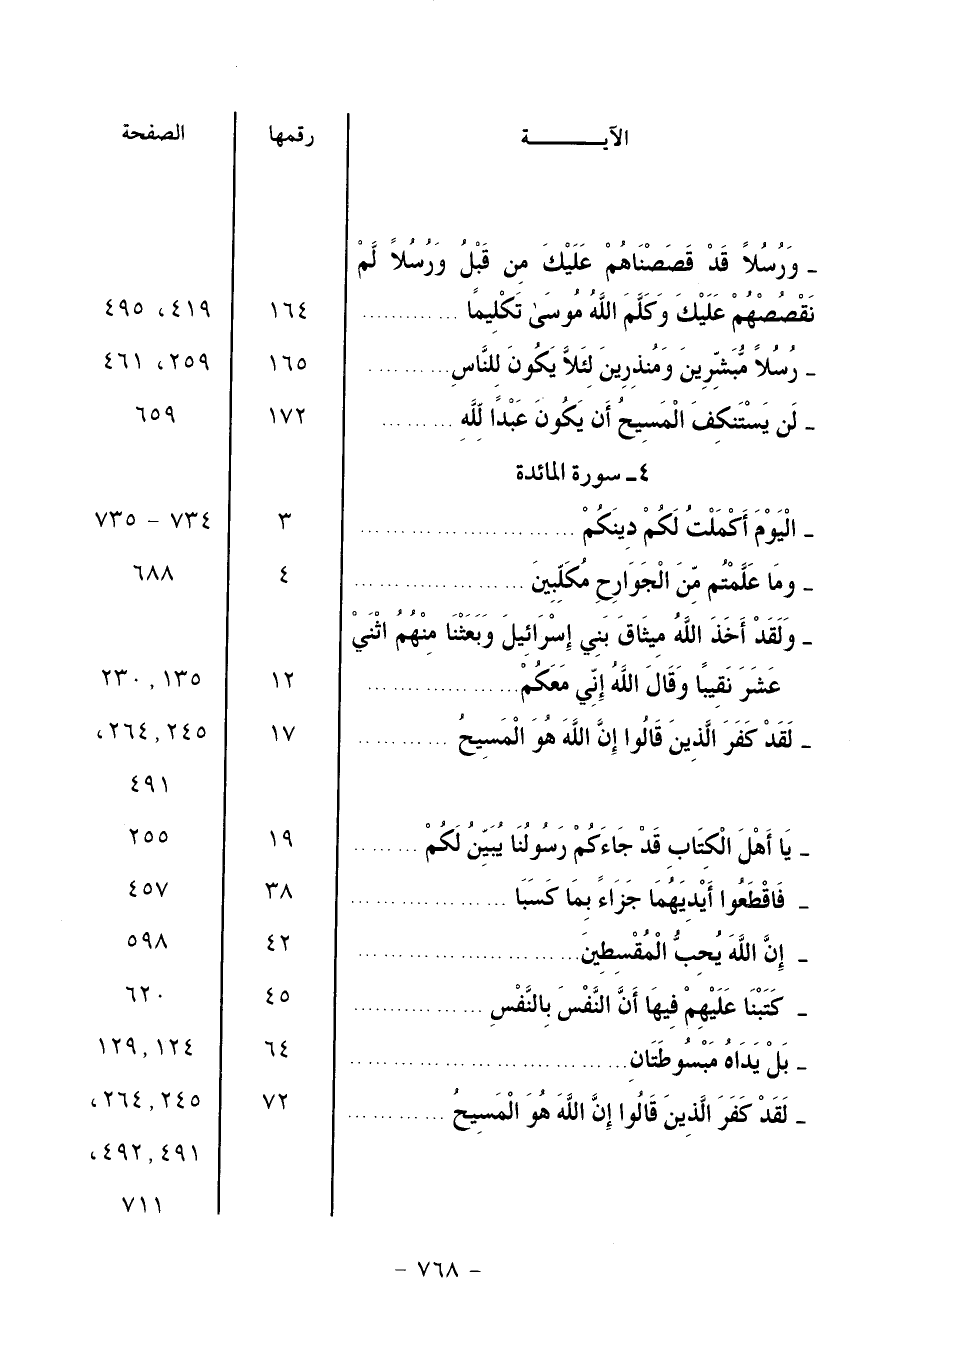 الآيـــــــة رقمها الصفحة
ـ وَرُسُلاً قَدْ قَصَصْنَاهُمْ عَلَيْكَ مِن قَبْلُ وَرُسُلاً لَّمْ
نَقْصُصْهُمْ عَلَيْكَ وَكَلَّمَ اللَّهُ مُوسَىٰ تَكْلِيمًا ... .......... ١٦٤ ٤١٩، ٤٩٥
ـ رُسُلاً مُّبَشِّرِينَ وَمُنذِرِينَ لِئَلاَّ يَكُونَ لِلنَّاسِ... ... .... ١٦٥ ٢٥٩، ٤٦١
ـ لَن يَسْتَنكِفَ الْمَسِيحُ أَن يَكُونَ عَبْدًا لِّلَّهِ ... ... ... ١٧٢ ٦٥٩
٤ـ سورة المائدة
ـ الْيَوْمَ أَكْمَلْتُ لَكُمْ دِينَكُمْ ... ... ... ... ... ... ... ٣ ٧٣٤ – ٧٣٥
ـ وَمَا عَلَّمْتُم مِّنَ الْجَوَارِحِ مُكَلِّبِينَ ... ... ... ...... ... ... ٤ ٦٨٨
ـ وَلَقَدْ أَخَذَ اللَّهُ مِيثَاقَ بَنِي إِسْرَائِيلَ وَبَعَثْنَا مِنْهُمُ اثْنَيْ
عَشَرَ نَقِيبًا وَقَالَ اللَّهُ إِنِّي مَعَكُمْ... ... ...... .... ... ١٢ ١٣٥, ٢٣٠
ـ لَقَدْ كَفَرَ الَّذِينَ قَالُوا إِنَّ اللَّهَ هُوَ الْمَسِيحُ ... ... ... .. ١٧ ٢٤٥, ٢٦٤،
٤٩١
ـ يَا أَهْلَ الْكِتَابِ قَدْ جَاءَكُمْ رَسُولُنَا يُبَيِّنُ لَكُمْ ... ... .. ١٩ ٢٥٥
ـ فَاقْطَعُوا أَيْدِيَهُمَا جَزَاءً بِمَا كَسَبَا ... ... ...... ... ... ٣٨ ٤٥٧
ـ إِنَّ اللَّهَ يُحِبُّ الْمُقْسِطِينَ... ... ... ...... ... ... ... ... ٤٢ ٥٩٨
ـ كَتَبْنَا عَلَيْهِمْ فِيهَا أَنَّ النَّفْسَ بِالنَّفْسِ ... ... ........... ٤٥ ٦٢٠
ـ بَلْ يَدَاهُ مَبْسُوطَتَانِ... ... ... .... ... ... ... ... ... .. ٦٤ ١٢٤, ١٢٩
ـ لَقَدْ كَفَرَ الَّذِينَ قَالُوا إِنَّ اللَّهَ هُوَ الْمَسِيحُ ... ... ... ... ٧٢ ٢٤٥, ٢٦٤،
٤٩١, ٤٩٢،
٧١١
– ٧٦٨ –